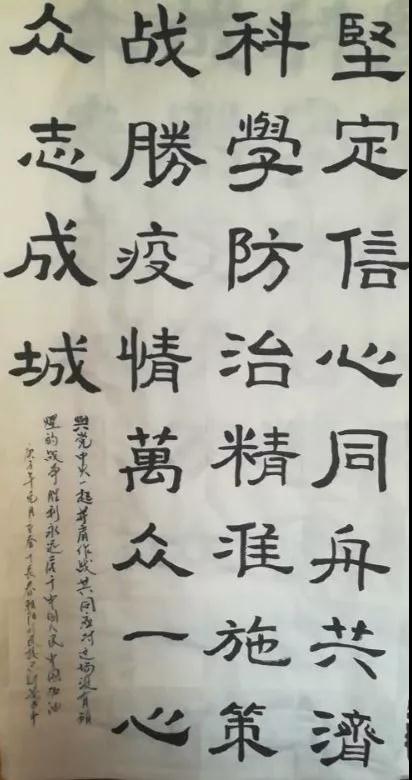 堅定信心同舟共濟
科學防治精准施策
战勝疫情萬众一心
众志成城
與党中央一起并肩作战共同应对这场没有硝
烟的战争胜利永远属于中国人民中国加油
庚子年元月于长春朝阳